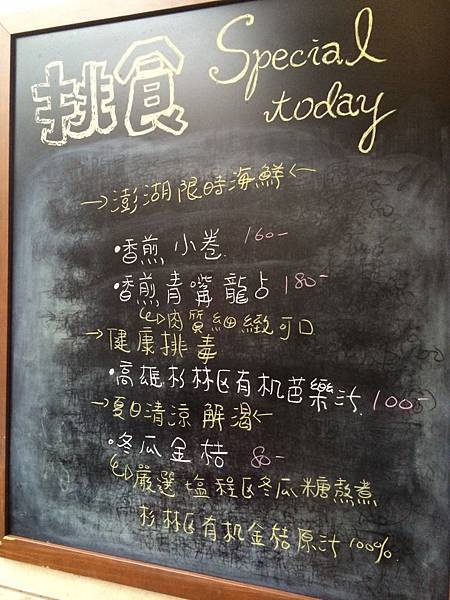 挑食 Special today
→澎湖限時海鮮←
•香煎小卷 160-
•香煎青嘴龍占 180-
↳肉質細緻可口
→健康排毒
•高雄杉林区有机芭樂汁 100-
→夏日清涼解渴←
•冬瓜金桔 80-
↳嚴選塩程区冬瓜糖熬煮
杉林区有机金桔原汁100%